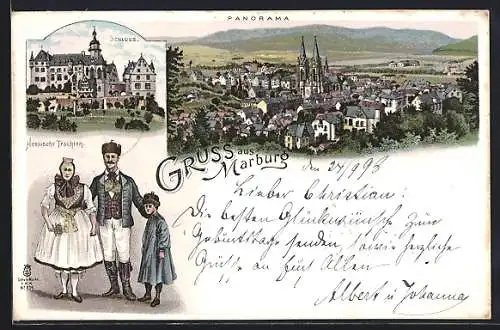 PANORAMA
SCHLOSS.
Hessische Trachten.
GRUSS aus
Marburg
den 24/9 98
Lieber Christian!
Die besten Glückwünsche zum
Geburtstage senden, sowie herzliche
Grüße an Euch Allen
Albert u Johanna